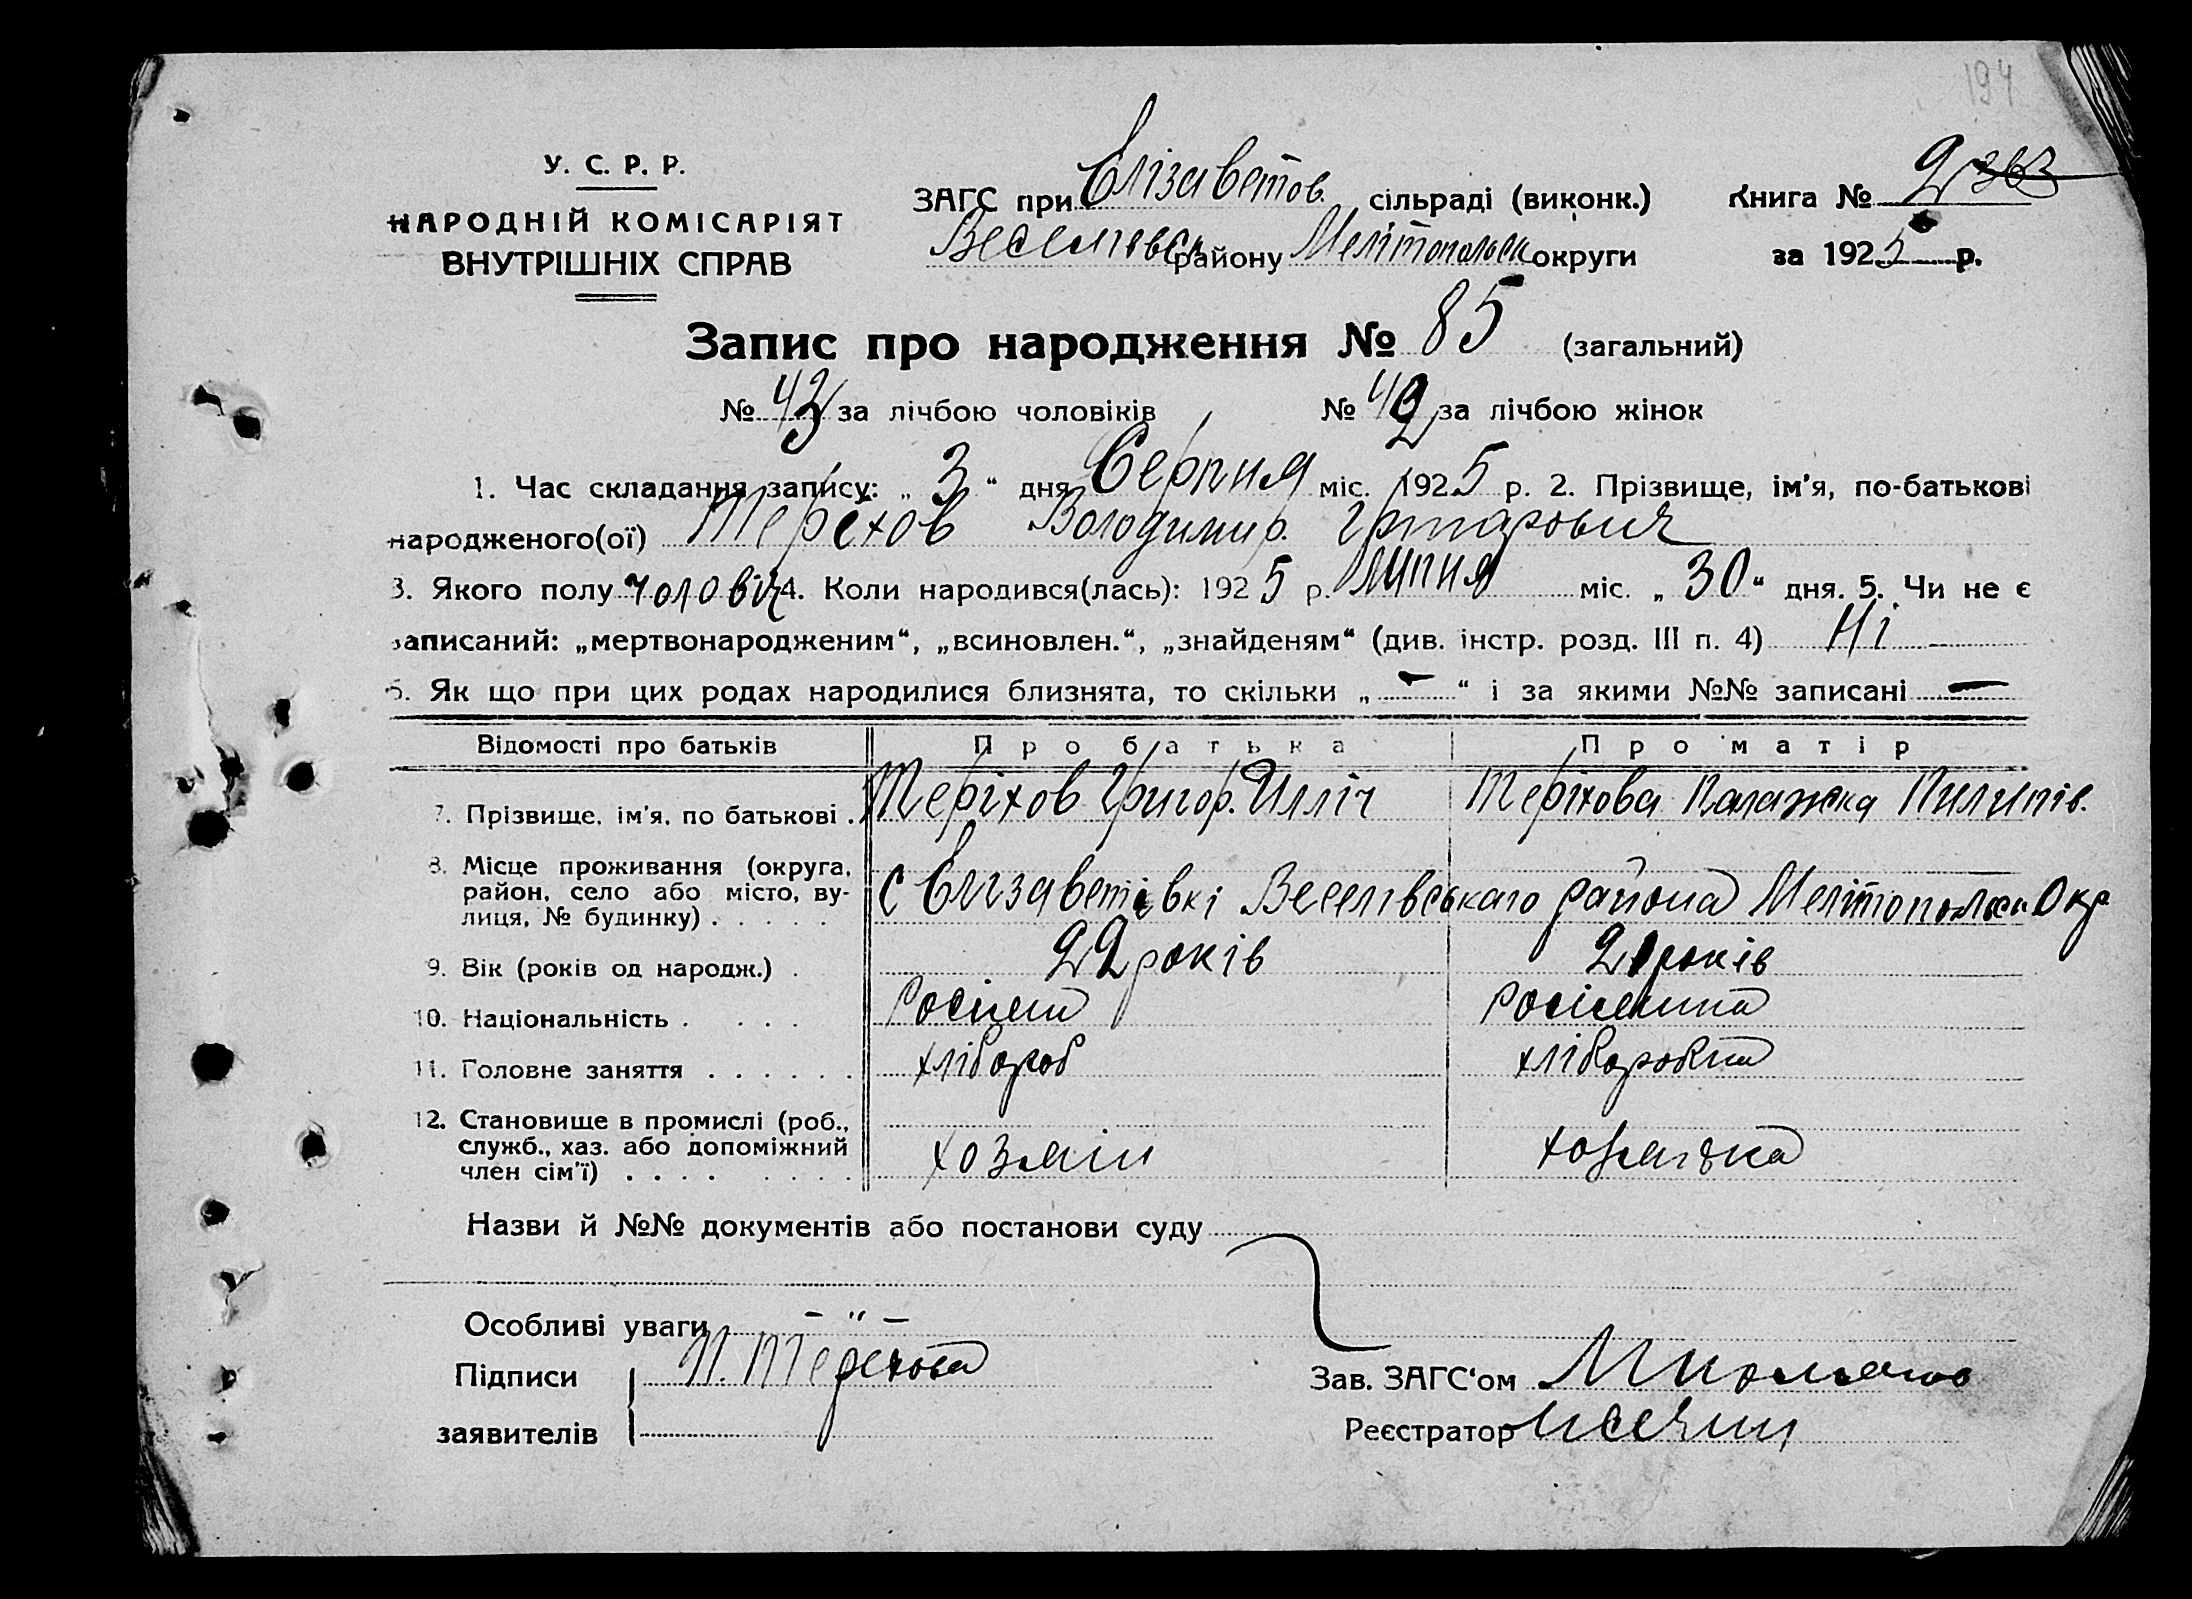 194
У. С. Р. Р.
НАРОДНІЙ КОМІСАРІЯТ
ВНУТРІШНІХ СПРАВ
ЗАГС при Єлізаветов. сільраді (виконк.) Книга № 2
Веселівськ району Мелітопольськ округи за 1925 р.
Запис про народження № 85 (загальний)
№ 43 за лічбою чоловіків № 42 за лічбою жінок
1. Час складання запису: „ 3 “ дня Серпня міс. 1925 р. 2. Прізвище, ім'я, по-батькові
народженого(ої) Терехов Володимир.
3. Якого полу чоловіч 4. Коли народився(лась): 1925 р. Липня міс. „ 30 “ дня. 5. Чи не є
записаний: „мертвонародженим“, „всиновлен.“, „знайденям“ (див. інстр. розд. III п. 4) Ні
6. Як що при цих родах народилися близнята, то скільки „ — “ і за якими №№ записані —
Відомості про батьків Про батька Про матір
7. Прізвище, ім'я, по батькові . Теріхов Григор. Илліч Теріхова Палажка Пилипів.
8. Місце проживання (округа,
район, село або місто, ву-
лиця, № будинку) . . . . . С Єлізаветівкі Веселівськаго района Мелітопольськ Окр
9. Вік (років од народж.) . 22 років 21 років
10. Національність . . . . росіян росіянина
11. Головне заняття . . . . . . хлібороб хліборобка
12. Становище в промислі (роб.,
служб., хаз. або допоміжний
член сім'ї) . . . . . . . . хозяін хозяівка
Назви й №№ документів або постанови суду
Особливі уваги — " —
Підписи П. Терехова Зав. ЗАГС'ом
заявителів Реєстратор